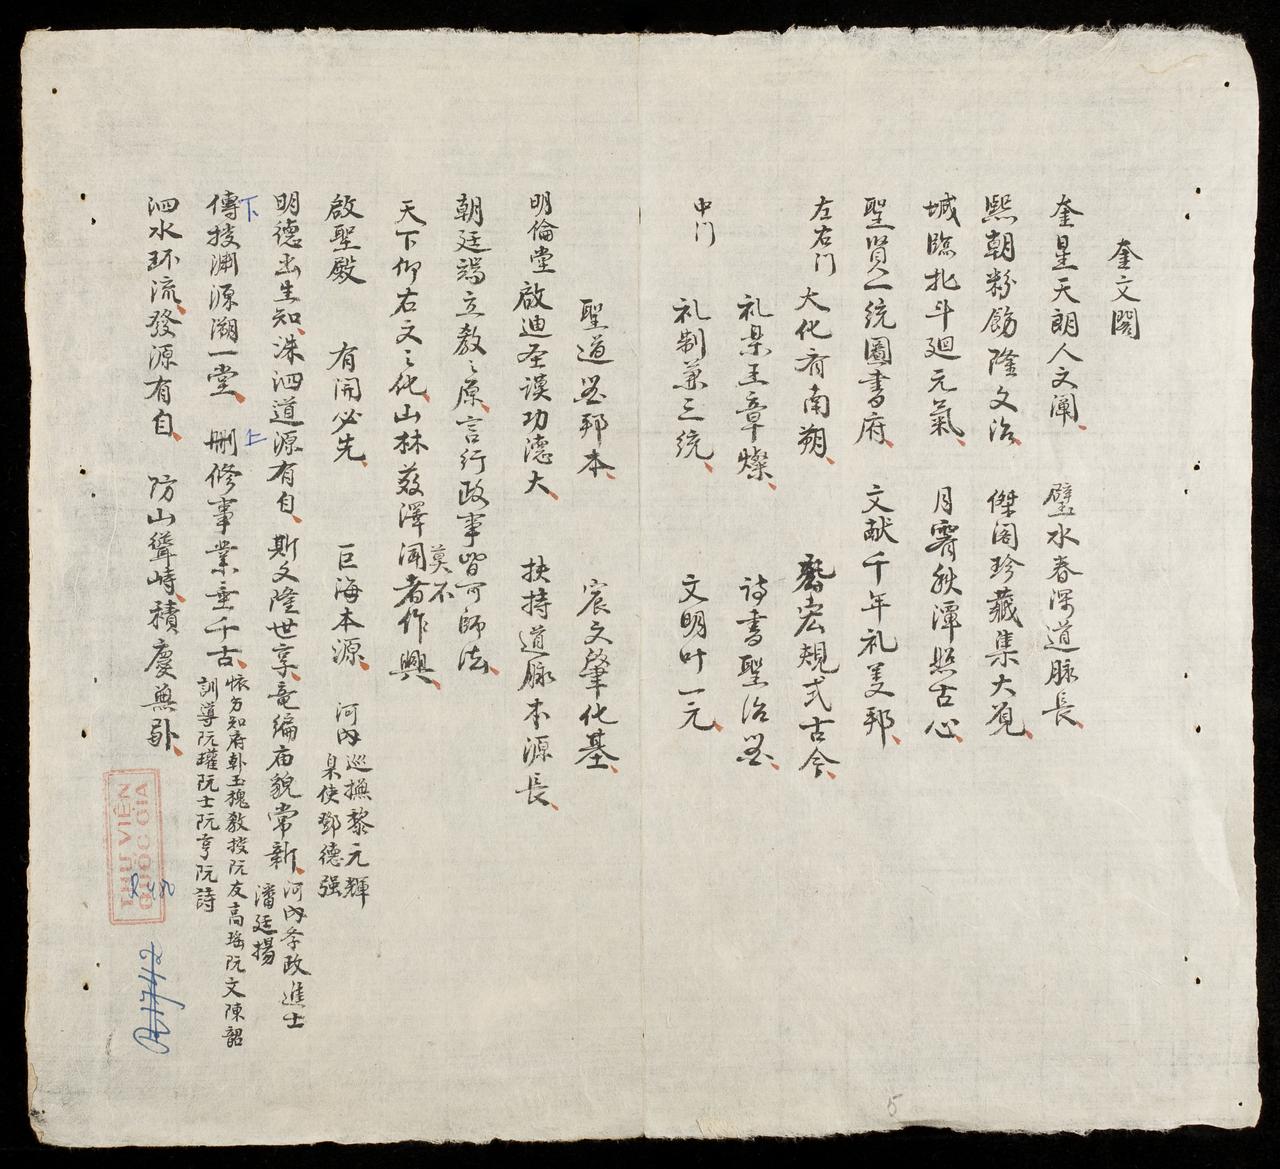 奎文閣
奎星天朗人文闡 璧水春深道脉長
熙朝粉飭隆文治 傑閣珍藏集大覌
城臨北斗廻元氣 月霽秋潭照古心
聖賢一統圖書府 文献千年礼羙邦
左右门 大化肴南朔 宏規式古今
礼樂王章燦 詩書聖治
中门 礼制兼三統 文明叶一元
聖道邦本 宸文肇化基
明倫堂啟迪圣謨功德大 扶持道脉本源長
朝廷端立教〻原言行政事皆可師法
天下仰右文〻化山林薮澤聞者莫不作興
啟聖殿 有開必先 巨海本源 河内巡撫黎元輝
臬使鄧德强
明德出生知洙泗道源有自 斯文隆世享竜編庙貌常新 河内叅政進士
潘廷揚
下 傳授渊源溯一堂 上 刪修事業垂千古 怀方知府玉槐教授阮友高瑶阮文陳韶
訓導阮瓘阮士阮亨阮詩
泗水环流發源有自 防山聳峙積慶無
THƯ VIỆN
QUỐC GIA
R.1742
5